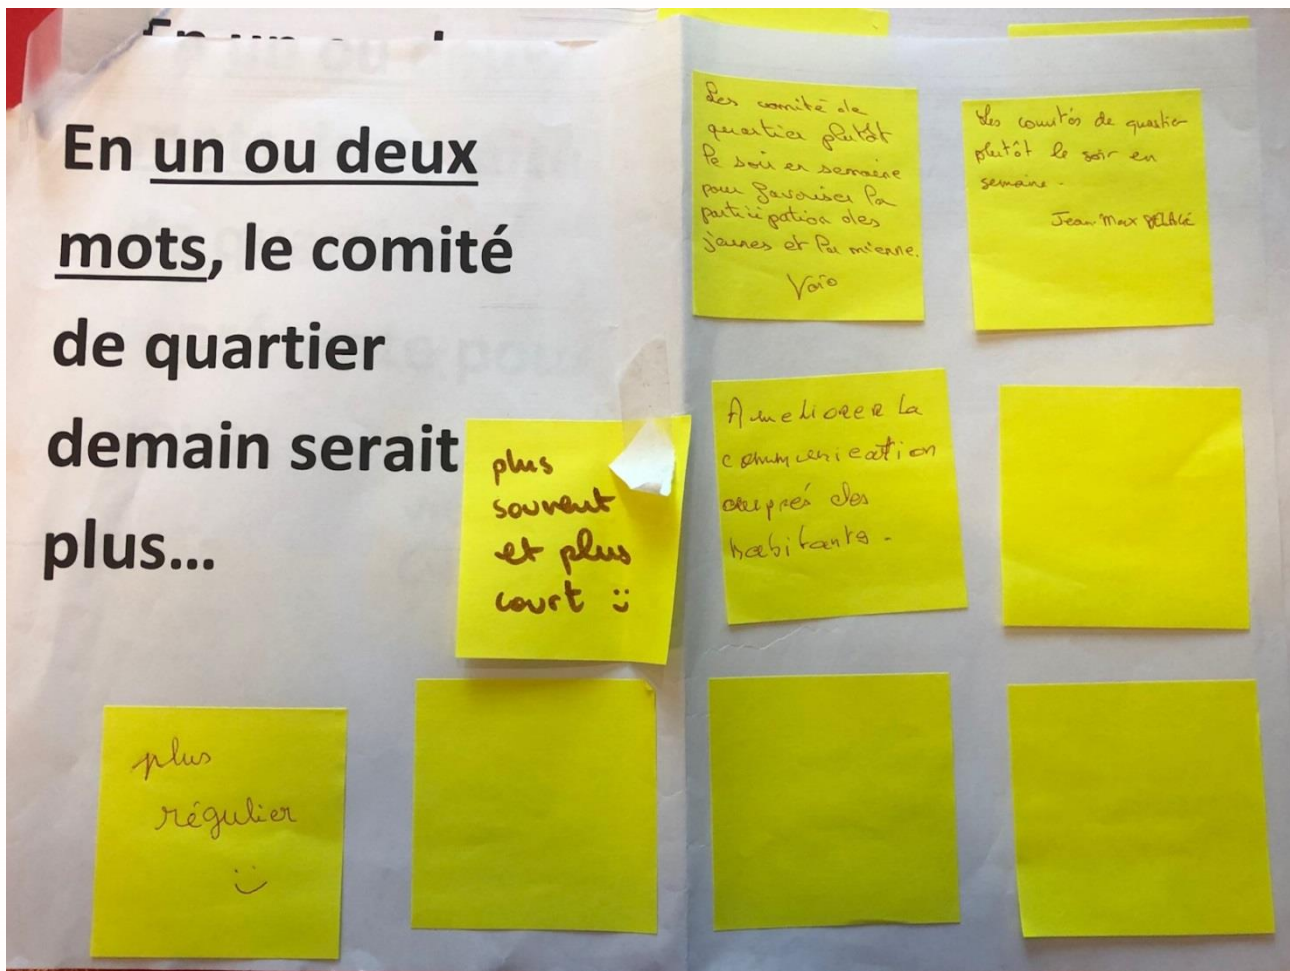 En un ou deux
mots, le comité
de quartier
demain serait
plus...
Les comité de
quartier plutôt
le soir en semaine
pour favoriser la
participation des
jeunes et la mienne.
Les comités de quartier
plutôt le soir en
semaine.
Jean-Max
plus
souvent
et plus
court
Ameliorer la
communication
auprés des
habitants.
plus
régulier